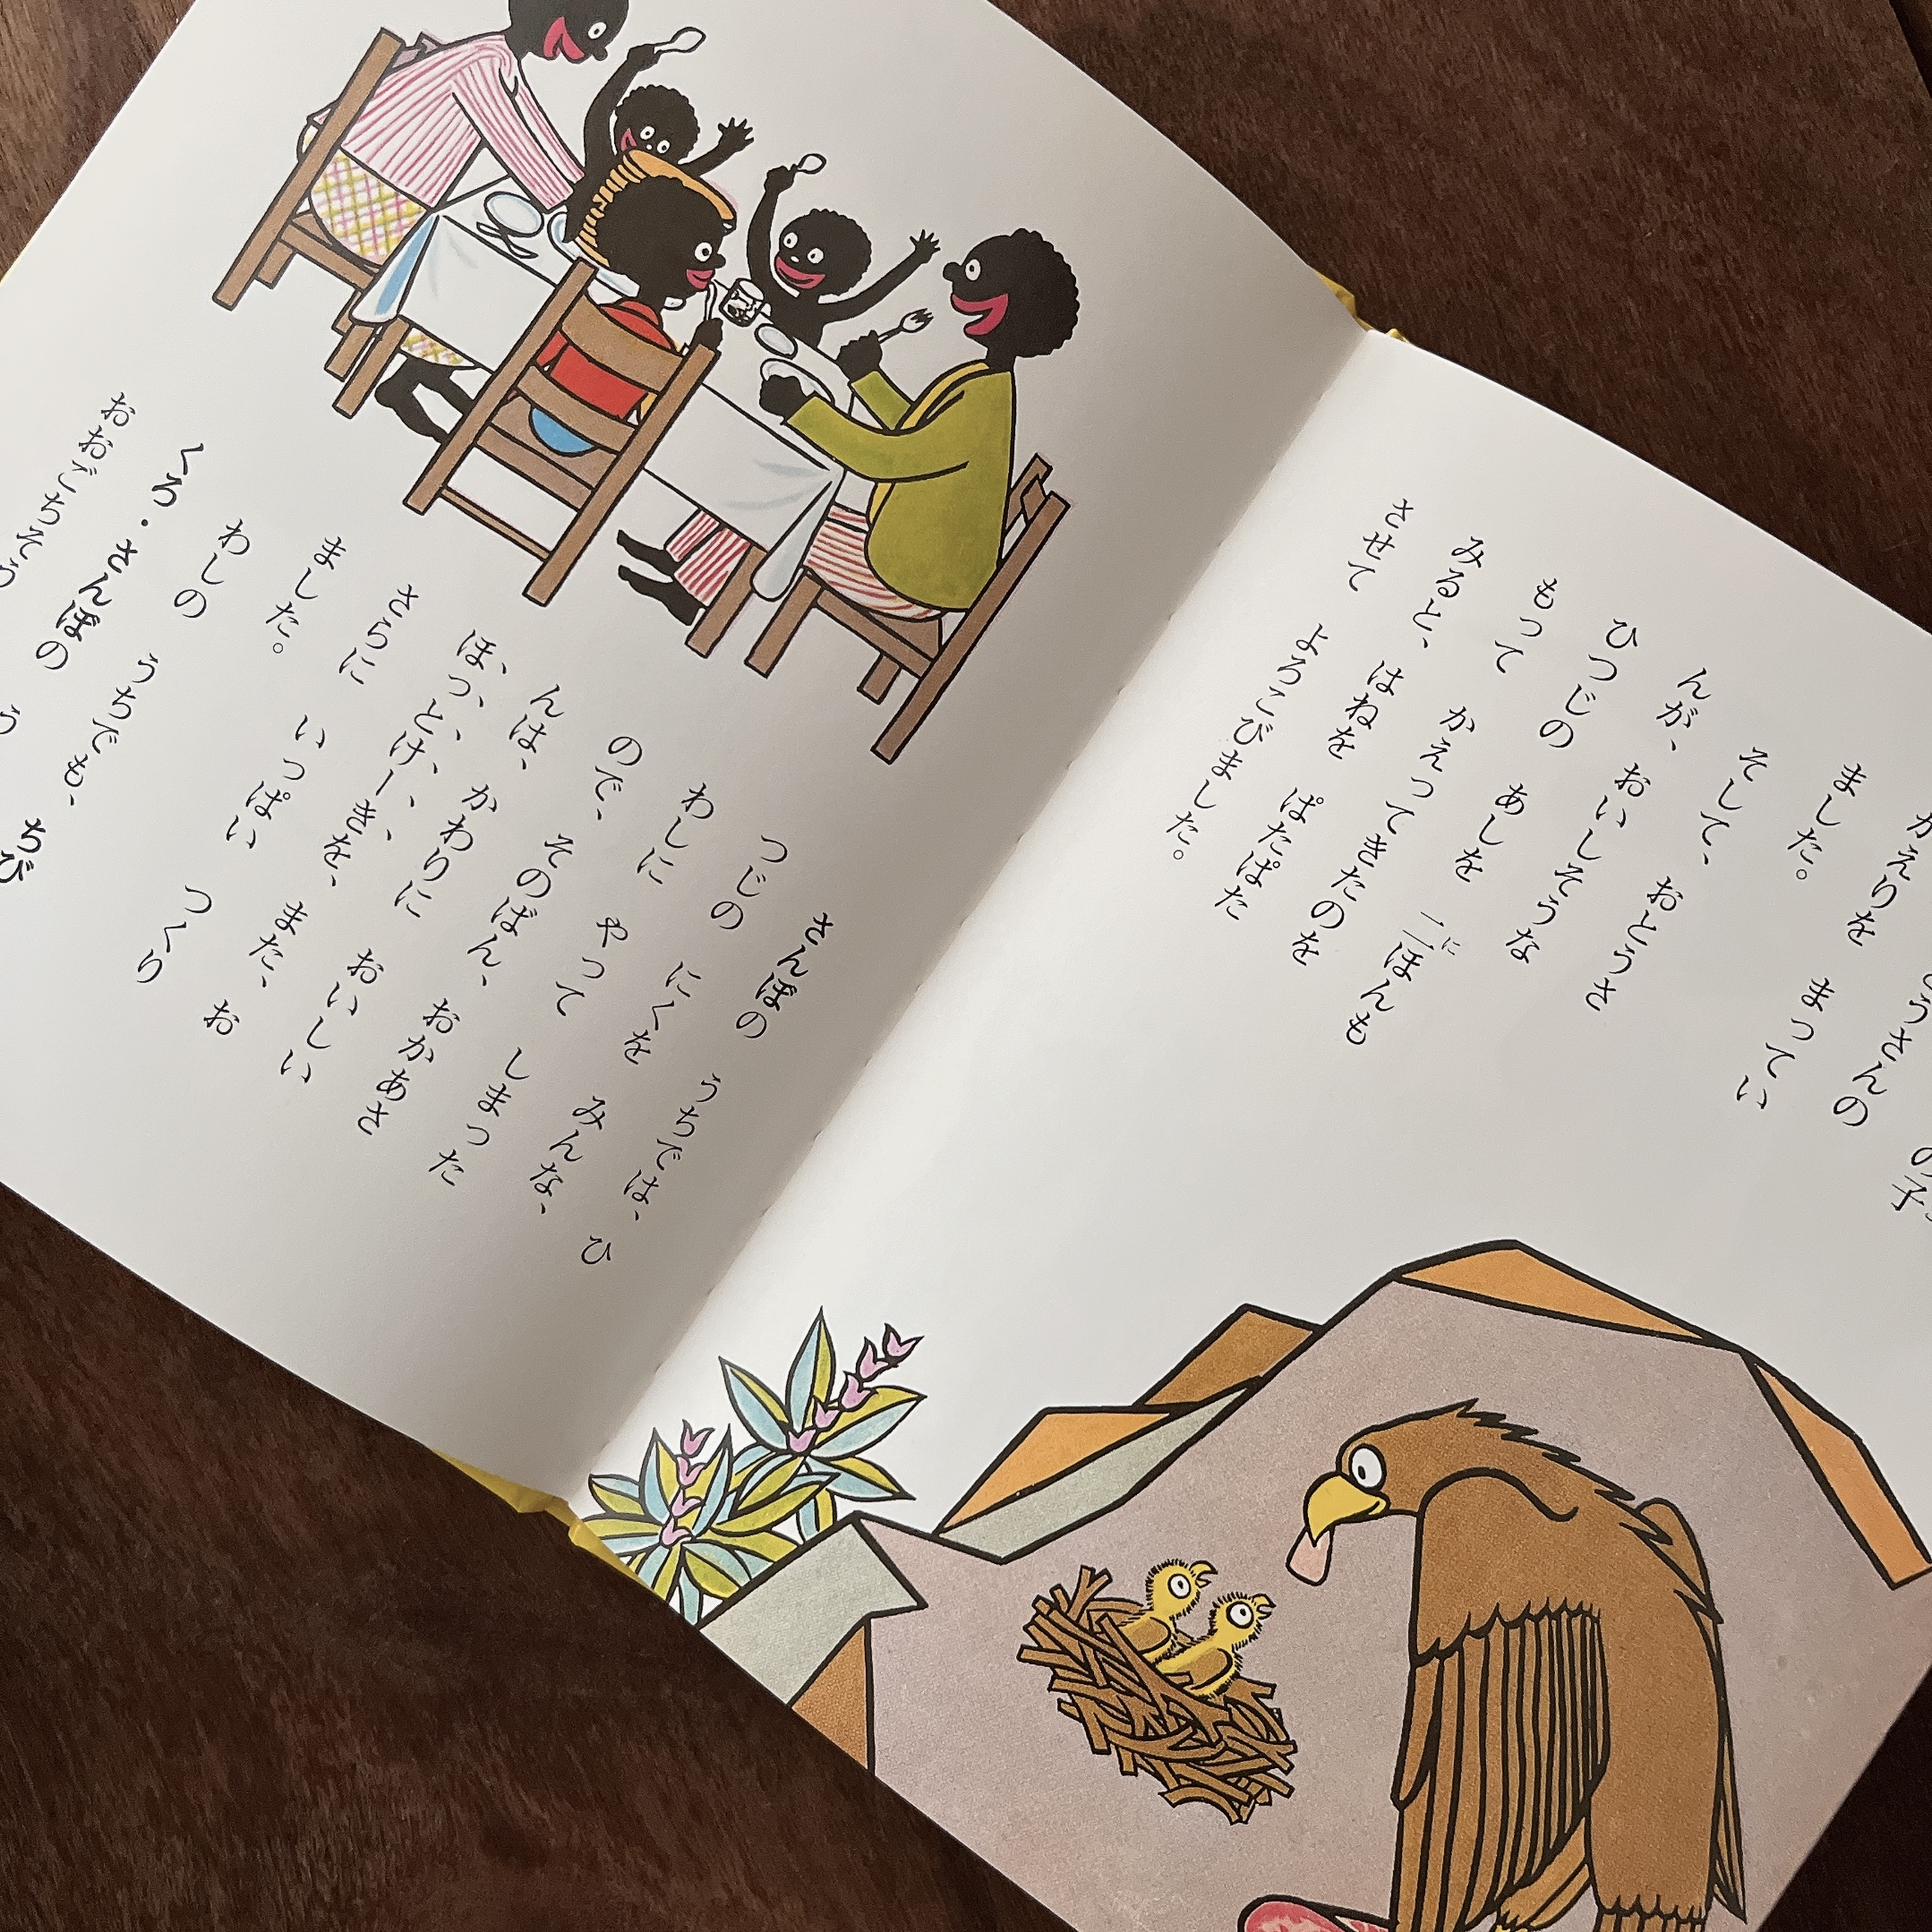 とうさんの
かえりを まってい
ました。
そして、 おとうさ
んが、 おいしそうな
ひつじの あしを 二ほんも
に
もって かえってきたのを
みると、 はねを ぱたぱた
させて よろこびました。
さんぼの うちでは、 ひ
つじの にくを みんな、
わしに やって しまった
ので、 そのばん、 おかあさ
んは、 かわりに おいしい
ほっとけーきを、 また、 お
さらに いっぱい つくり
ました。
わしの うちでも、 ちび
くろ・さんぼの う
おおごちそう